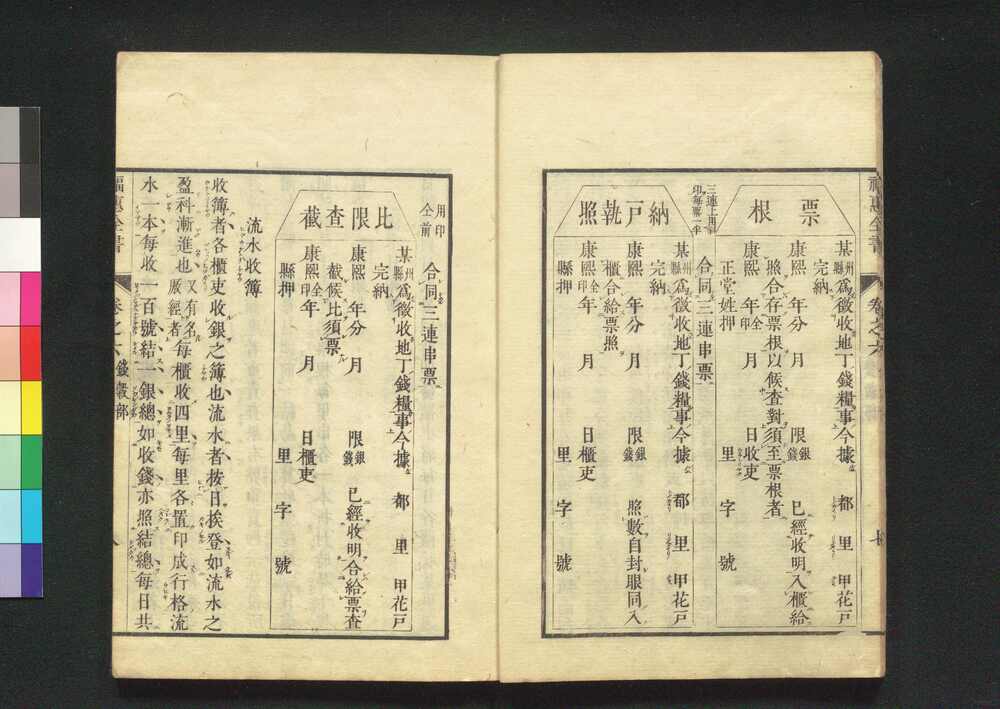 福惠全書
卷之六
十
票根
某州縣爲徵收地丁錢糧事今據 都 里 甲花戶
完納
康熙 年分 限銀錢 已經收明入櫃給
照合存票根以候查對須至票根者
康熙 年 月 日收吏
正堂姓押 里 字 號
三連上用印每票一半
合同三連串票
納戸執照
某州縣爲徵收地丁錢糧事今據 都 里 甲花戶
完納
康熙 年分 月 限銀錢 照數自封眼同入
櫃合給票照
康熙 年 月 日櫃吏
縣押 里 字 號
用印仝前
合同三連串票
比限查截
某州縣爲徵收地丁錢糧事今據 都 里 甲花戶
完納
康熙 年分 月 限銀錢 已經收明合給票查
截候比須票
康熙 年 月 日櫃吏
縣押 里 字 號
流水收簿
收簿者各櫃吏收銀之簿也流水者按日挨登如流水之
盈科漸進也又有名厫經者每櫃收四里每里各置印成行格流
水一本每收一百號結一銀總如收錢亦照結總每日共
福惠全書
卷之六
錢穀部
八